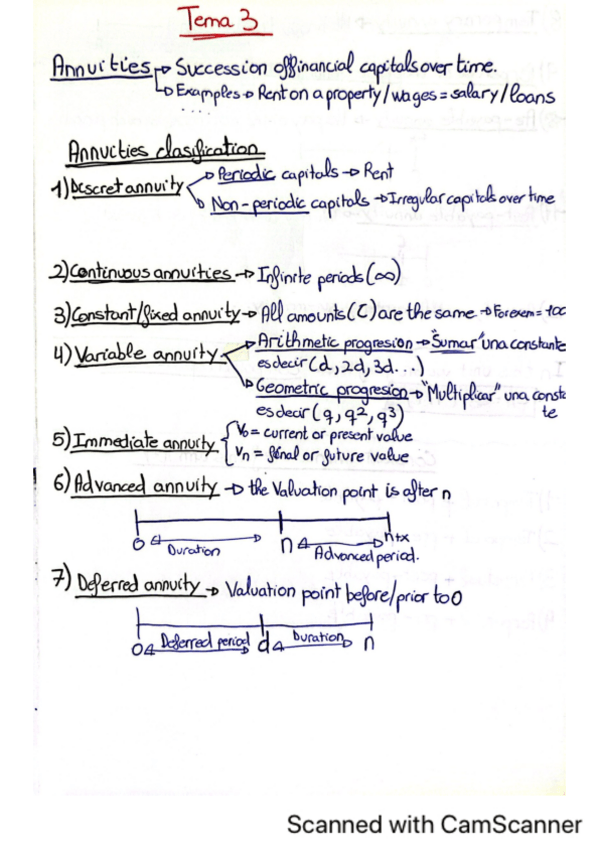 Tema 3
Annuities → Succession of financial capitals over time.
→ Examples → Rent on a property/wages = salary/loans
....
Annucties clasification
1) Descret annuity → Periodic capitals → Rent
→ Non-periodic capitals → Irregular capitals over time
2) Continuous annuities → Infinite periods (∞)
3) Constant/fixed annuity → All amounts (C) are the same → For exem = 100
4) Variable annuity → Arithmetic progresion → "Sumar" una constante
es decir (d, 2d, 3d...)
→ Geometric progresion → "Multiplicar" una consta
es decir (q, q², q³) te
5) Immediate annuity { V₀ = current or present value
Vn = final or future value
6) Advanced annuity → the Valuation point is after n
0 Duration n Advanced period. n+x
7) Deferred annuity → Valuation point before/prior to 0
0 Deferred period d Duration n
Scanned with CamScanner